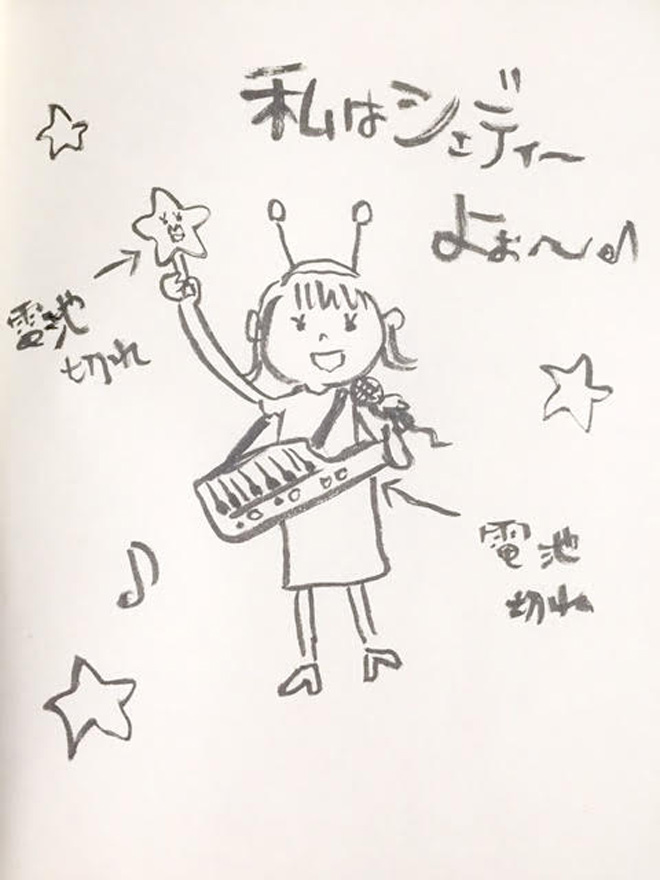 私はシェディー
よぉ〜♪
電池
切れ
電池
切れ